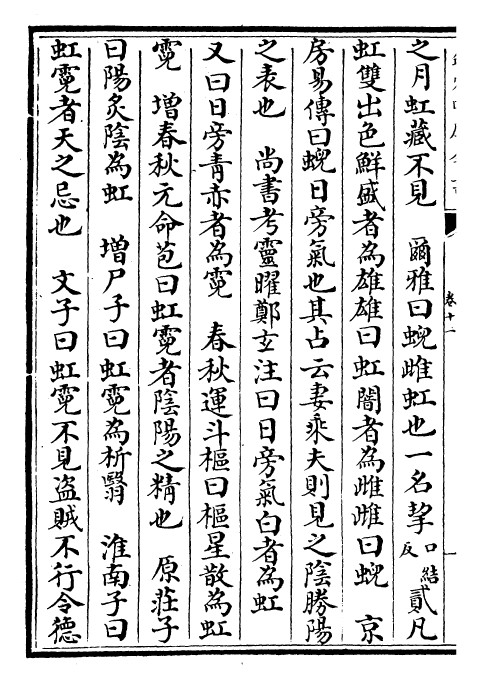 卷十一
之月虹藏不見　爾雅曰蜺雌虹也一名挈口結反貳凡
虹雙出色鮮盛者為雄雄曰虹闇者為雌雌曰蜺　京
房易傳曰蜺日旁氣也其占云妻乘夫則見之陰勝陽
之表也　尚書考靈曜鄭玄注曰日旁氣白者為虹
又曰日旁青赤者為霓　春秋運斗樞曰樞星散為虹
霓　增春秋元命苞曰虹霓者陰陽之精也　原莊子
曰陽炙陰為虹　增尸子曰虹霓為析翳　淮南子曰
虹霓者天之忌也　文子曰虹霓不見盜賊不行令德